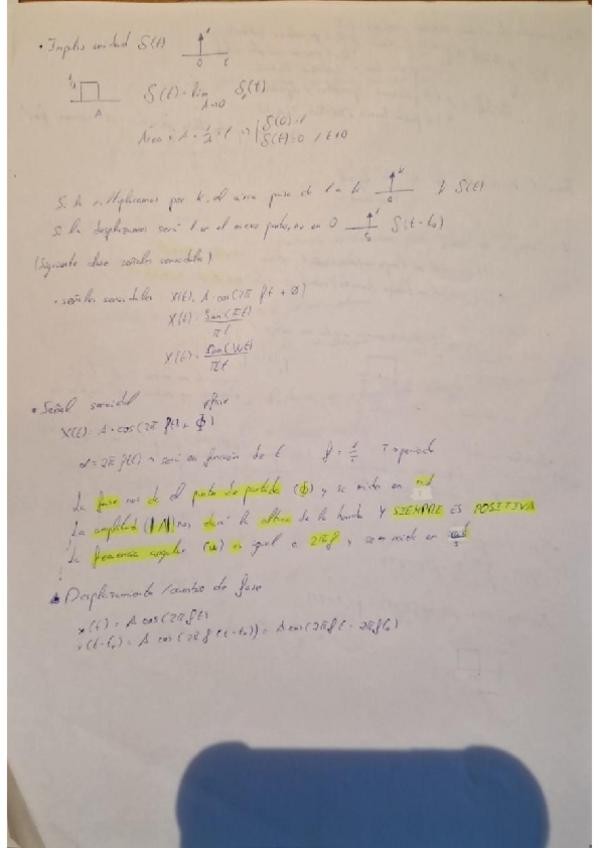 • Impulso unidad δ(t)
0 t
A
δ(t) = lim δ(t)
δ(0)
δ(t)=0 / t≠0
Si la multiplicamos por k, el área pasa de 1 a k k δ(t)
Si la desplazamos será 1 en el nuevo punto, no en 0 δ(t-t₀)
(Siguiente clase señales senoidales)
• señales senoidales X(t) = A·cos(2π ft + Φ)
X(t) = sen(πt) / πt
X(t) = sen(Wt) / πt
• Señal senoidal
fase
X(t) = A·cos(2π f(t) + Φ)
α = 2π f(t) será en función de t f = 1/T T = periodo
La fase nos da el punto de partida (Φ) y se mide en rad
La amplitud (|A|) nos dará la altura de la onda Y SIEMPRE ES POSITIVA
La frecuencia angular (ω) es igual a 2πf y se mide en rad/s
Desplazamiento / de fase
x(t) = A cos(2πft)
x(t-t₀) = A cos(2πf(t-t₀)) = A cos(2πft - 2πft₀)